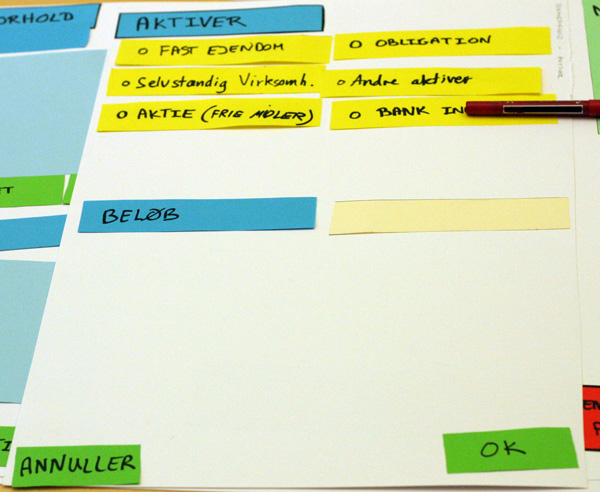 AKTIVER
o FAST EJENDOM
o OBLIGATION
o Selvstandig Virksomh.
o Andre aktiver
o AKTIE (FRIE MIDLER)
o BANK IN
BELØB
ANNULLER
OK